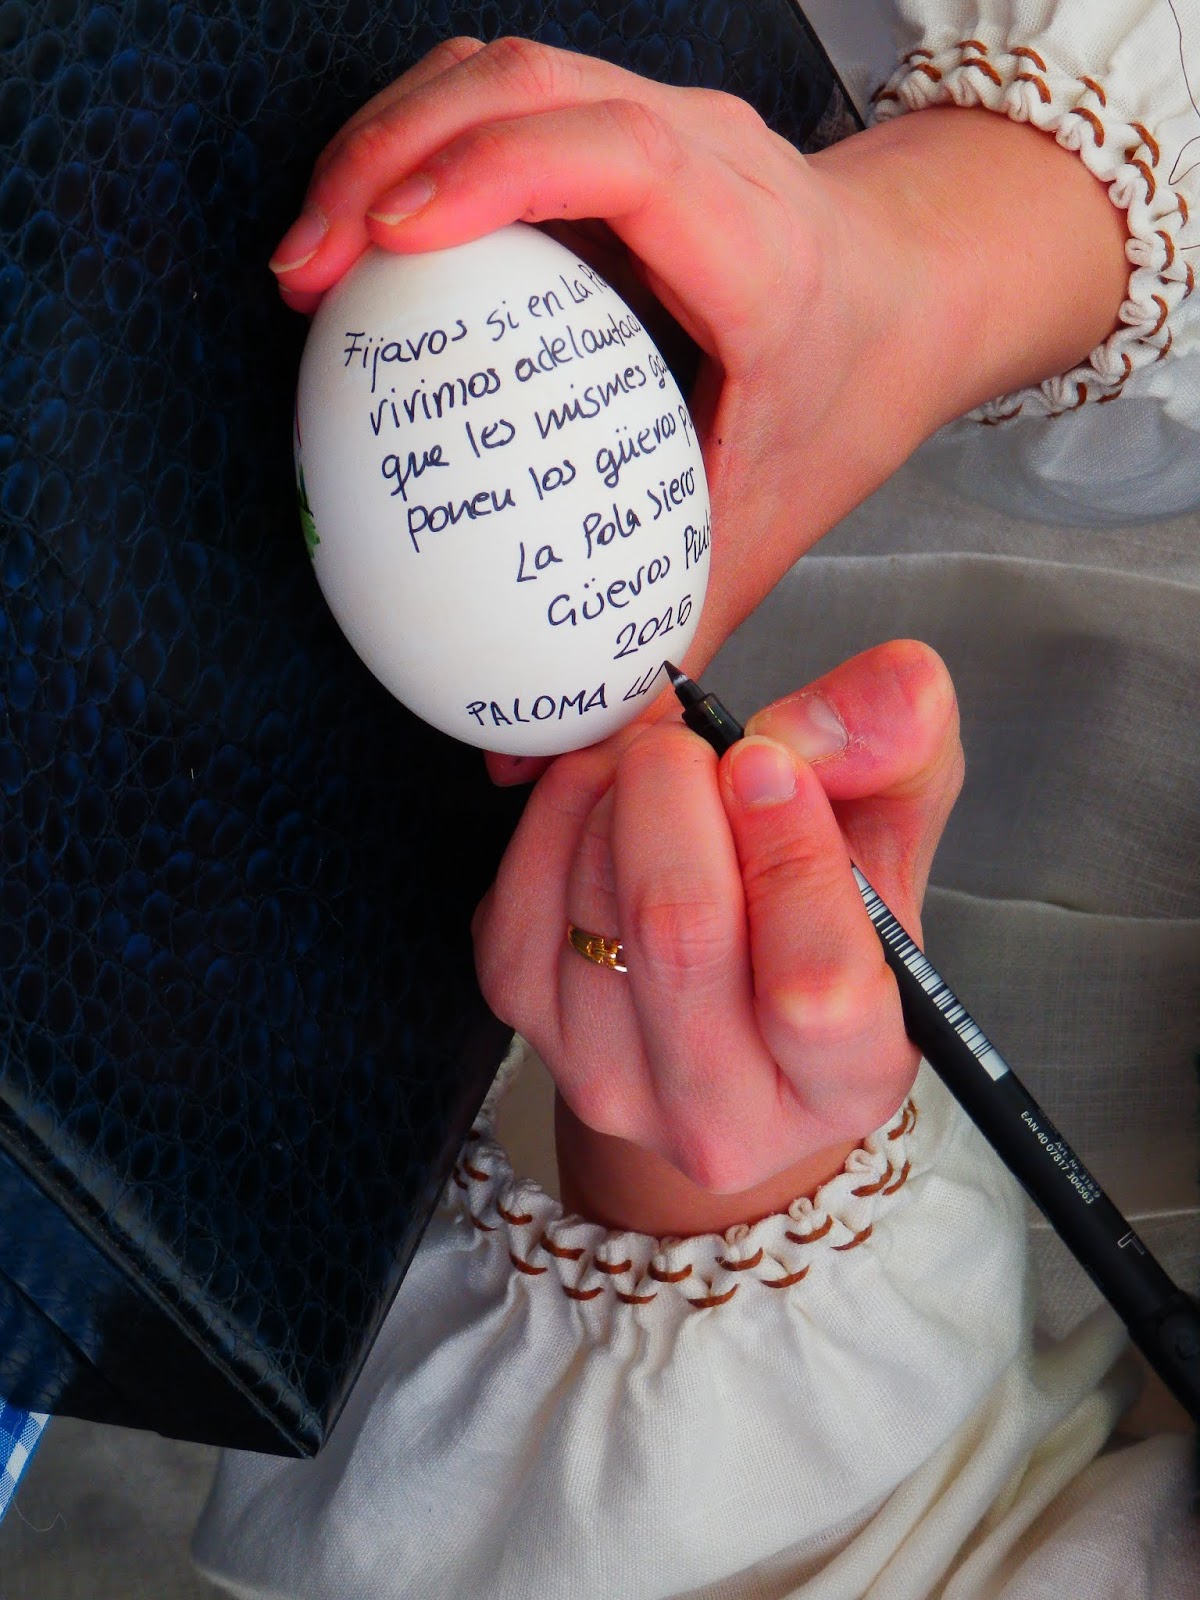 Fijavos si en La
vivimos adelantaos
que les mismes
ponen los güevos
La Pola Siero
Güevos
2015
PALOMA
Art. Nr. 318-9
EAN 40 07817 304563